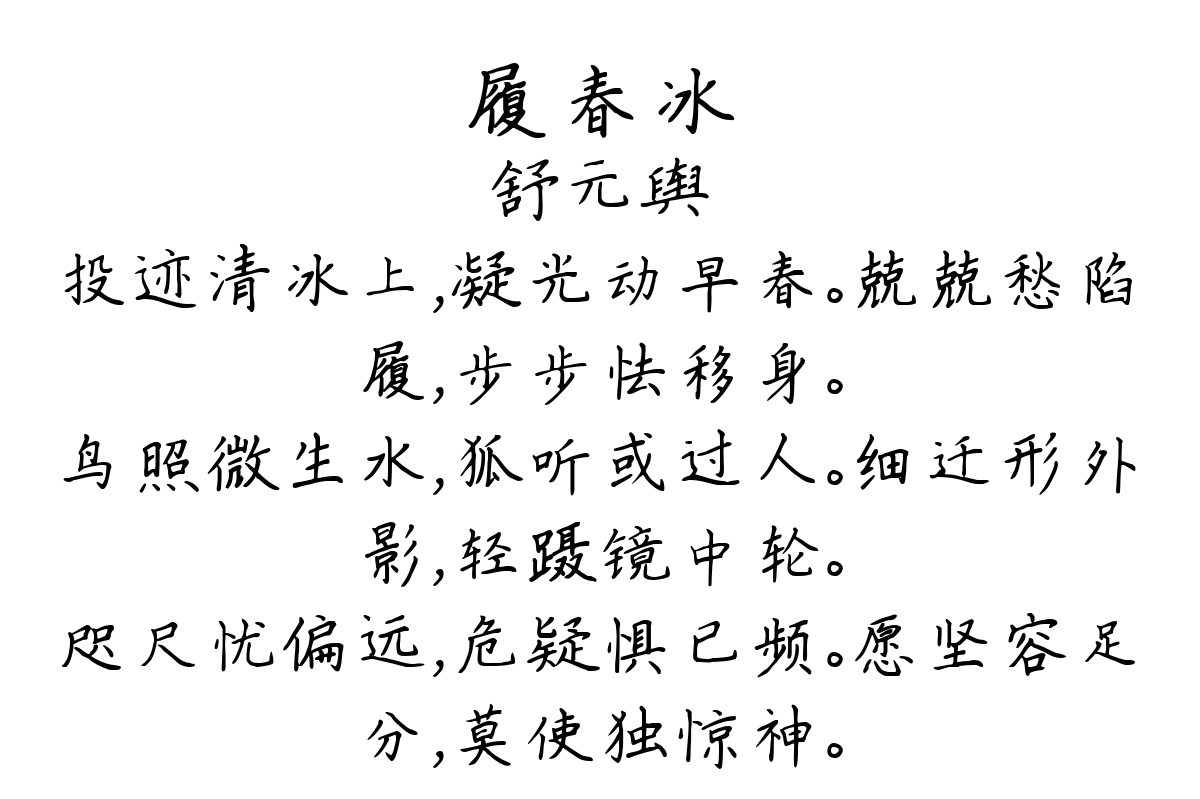 履春冰
舒元舆
投迹清冰上,凝光动早春。兢兢愁陷
履,步步怯移身。
鸟照微生水,狐听或过人。细迁形外
影,轻蹑镜中轮。
咫尺忧偏远,危疑惧已频。愿坚容足
分,莫使独惊神。